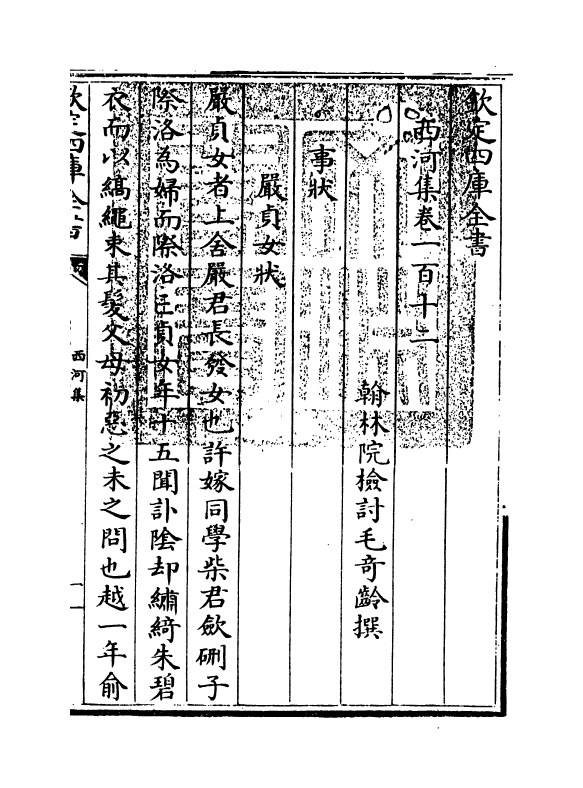 欽定四庫全書
西河集卷一百十二
翰林院檢討毛奇齡撰
事狀
嚴貞女狀
嚴貞女者上舍嚴君長發女也許嫁同學柴君歛硎子
際洛為婦而際洛亡貞女年十五聞訃陰却繡綺朱碧
衣而以縞繩束其髮父母初惡之未之問也越一年俞
欽定四庫全書
西河集
一